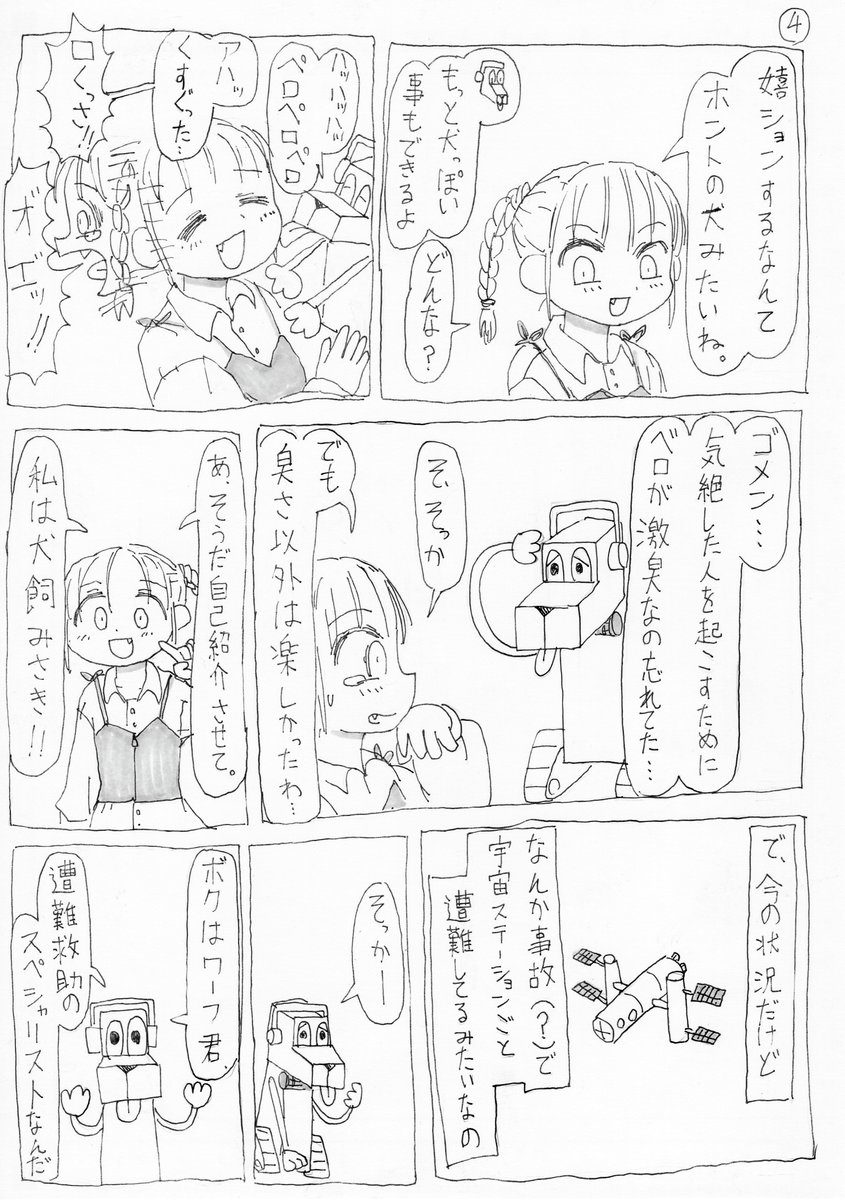 ④
嬉ションするなんて
ホントの犬みたいね。
もっと犬っぽい
事もできるよ
どんな?
ハッハッハッ
ペロペロペロ
アハッ
くすぐった…
口くっさ!!
オエッ!!
ゴメン…
気絶した人を起こすために
ベロが激臭なの忘れてた…
そ、そっか
でも
臭さ以外は楽しかったわ…
あ、そうだ自己紹介させて。
私は犬飼みさき!!
で、今の状況だけど
なんか事故(?)で
宇宙ステーションごと
遭難してるみたいなの
そっかー
ボクはワーフ君、
遭難救助の
スペシャリストなんだ